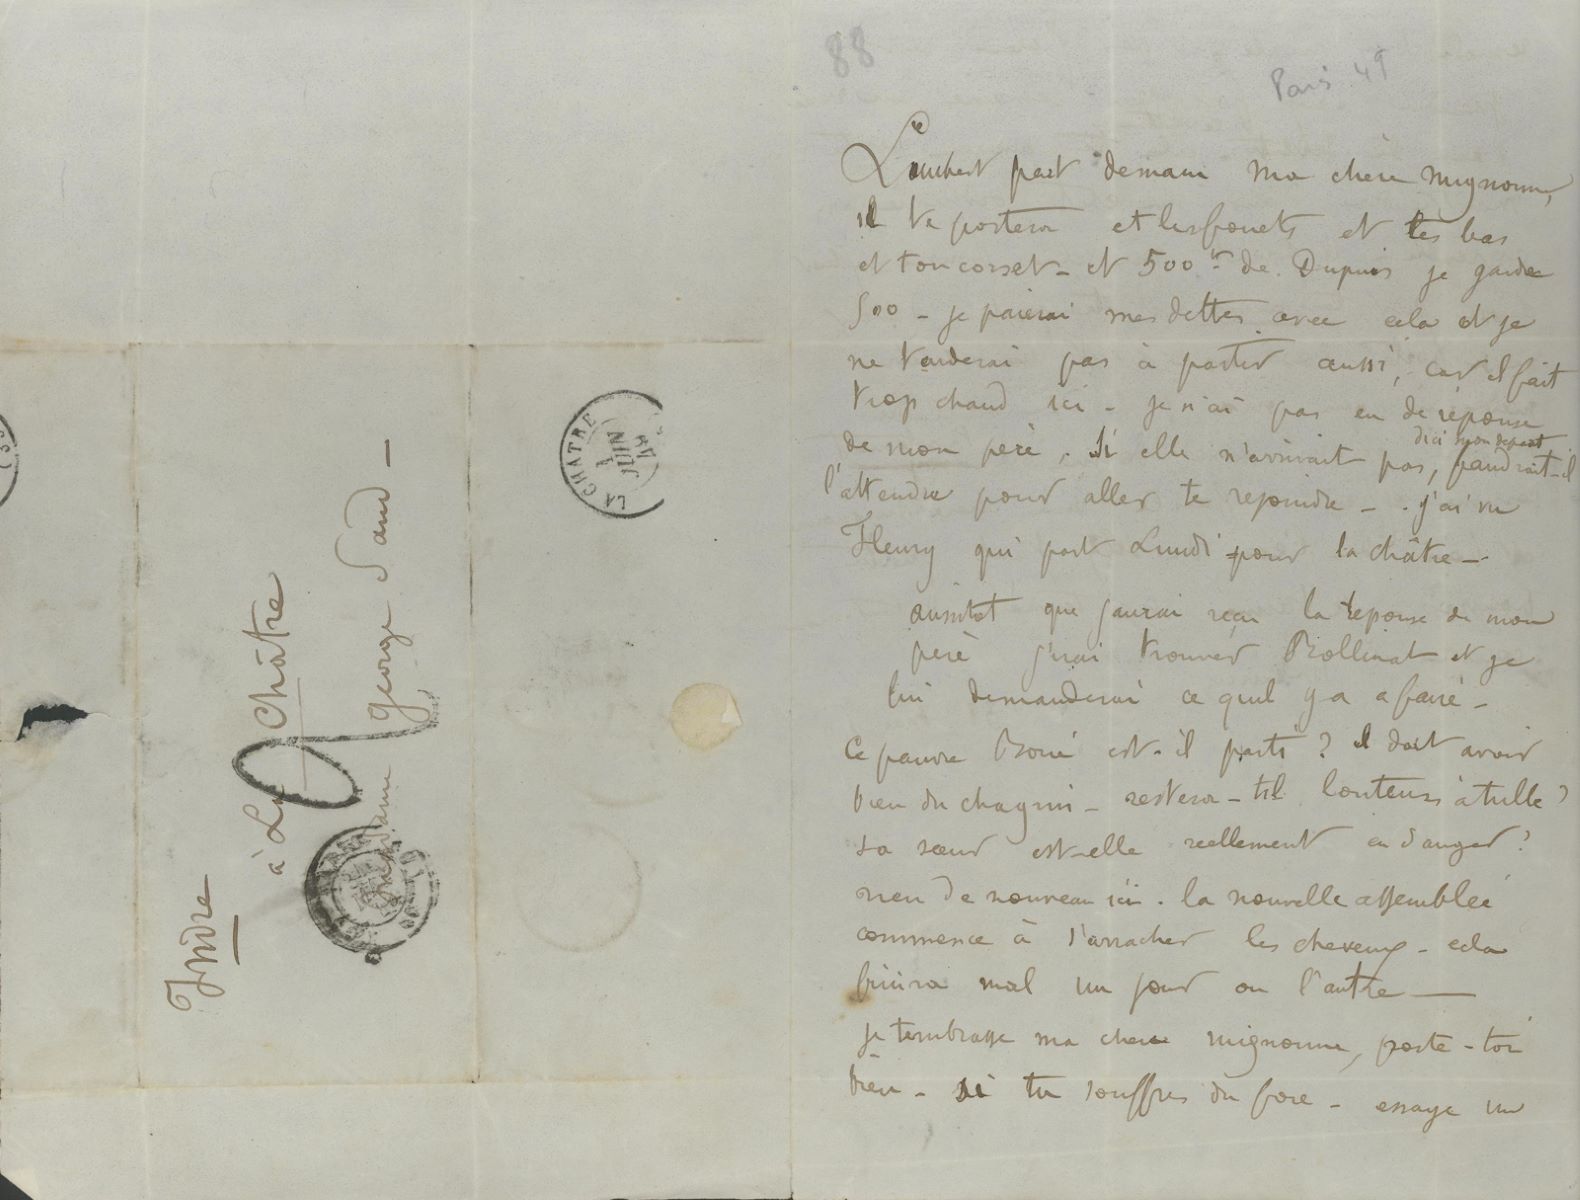 Indre
à La Châtre
Madame George Sand
LA CHATRE
1
JUIN
49
88
Paris 49
Lambert part demain ma chère mignonne,
il te portera et les fouets et tes bas
et ton corset - et 500 fr de Dupuis je garde
500 - je paierai mes dettes avec cela et je
ne tarderai pas à partir aussi, car il fait
trop chaud ici - je n'ai pas eu de réponse
de mon père. Si elle n'arrivait pas, d'ici mon départ faudrait-il
l'attendre pour aller te rejoindre - j'ai vu
Fleury qui part Lundi pour la châtre -
aussitot que j'aurai reçu la reponse de mon
père j'irai trouver Rollinat et je
lui demanderai ce quil y a a faire -
Ce pauvre Borie est-il parti? il doit avoir
bien du chagrin - restera-til lontems à tulle?
sa sœur est-elle reellement en danger?
rien de nouveau ici. la nouvelle assemblée
commence à s'arracher les cheveux - cela
finira mal un jour ou l'autre
je t'embrasse ma chere mignonne, porte-toi
bien - si tu souffres du foie - essaye un